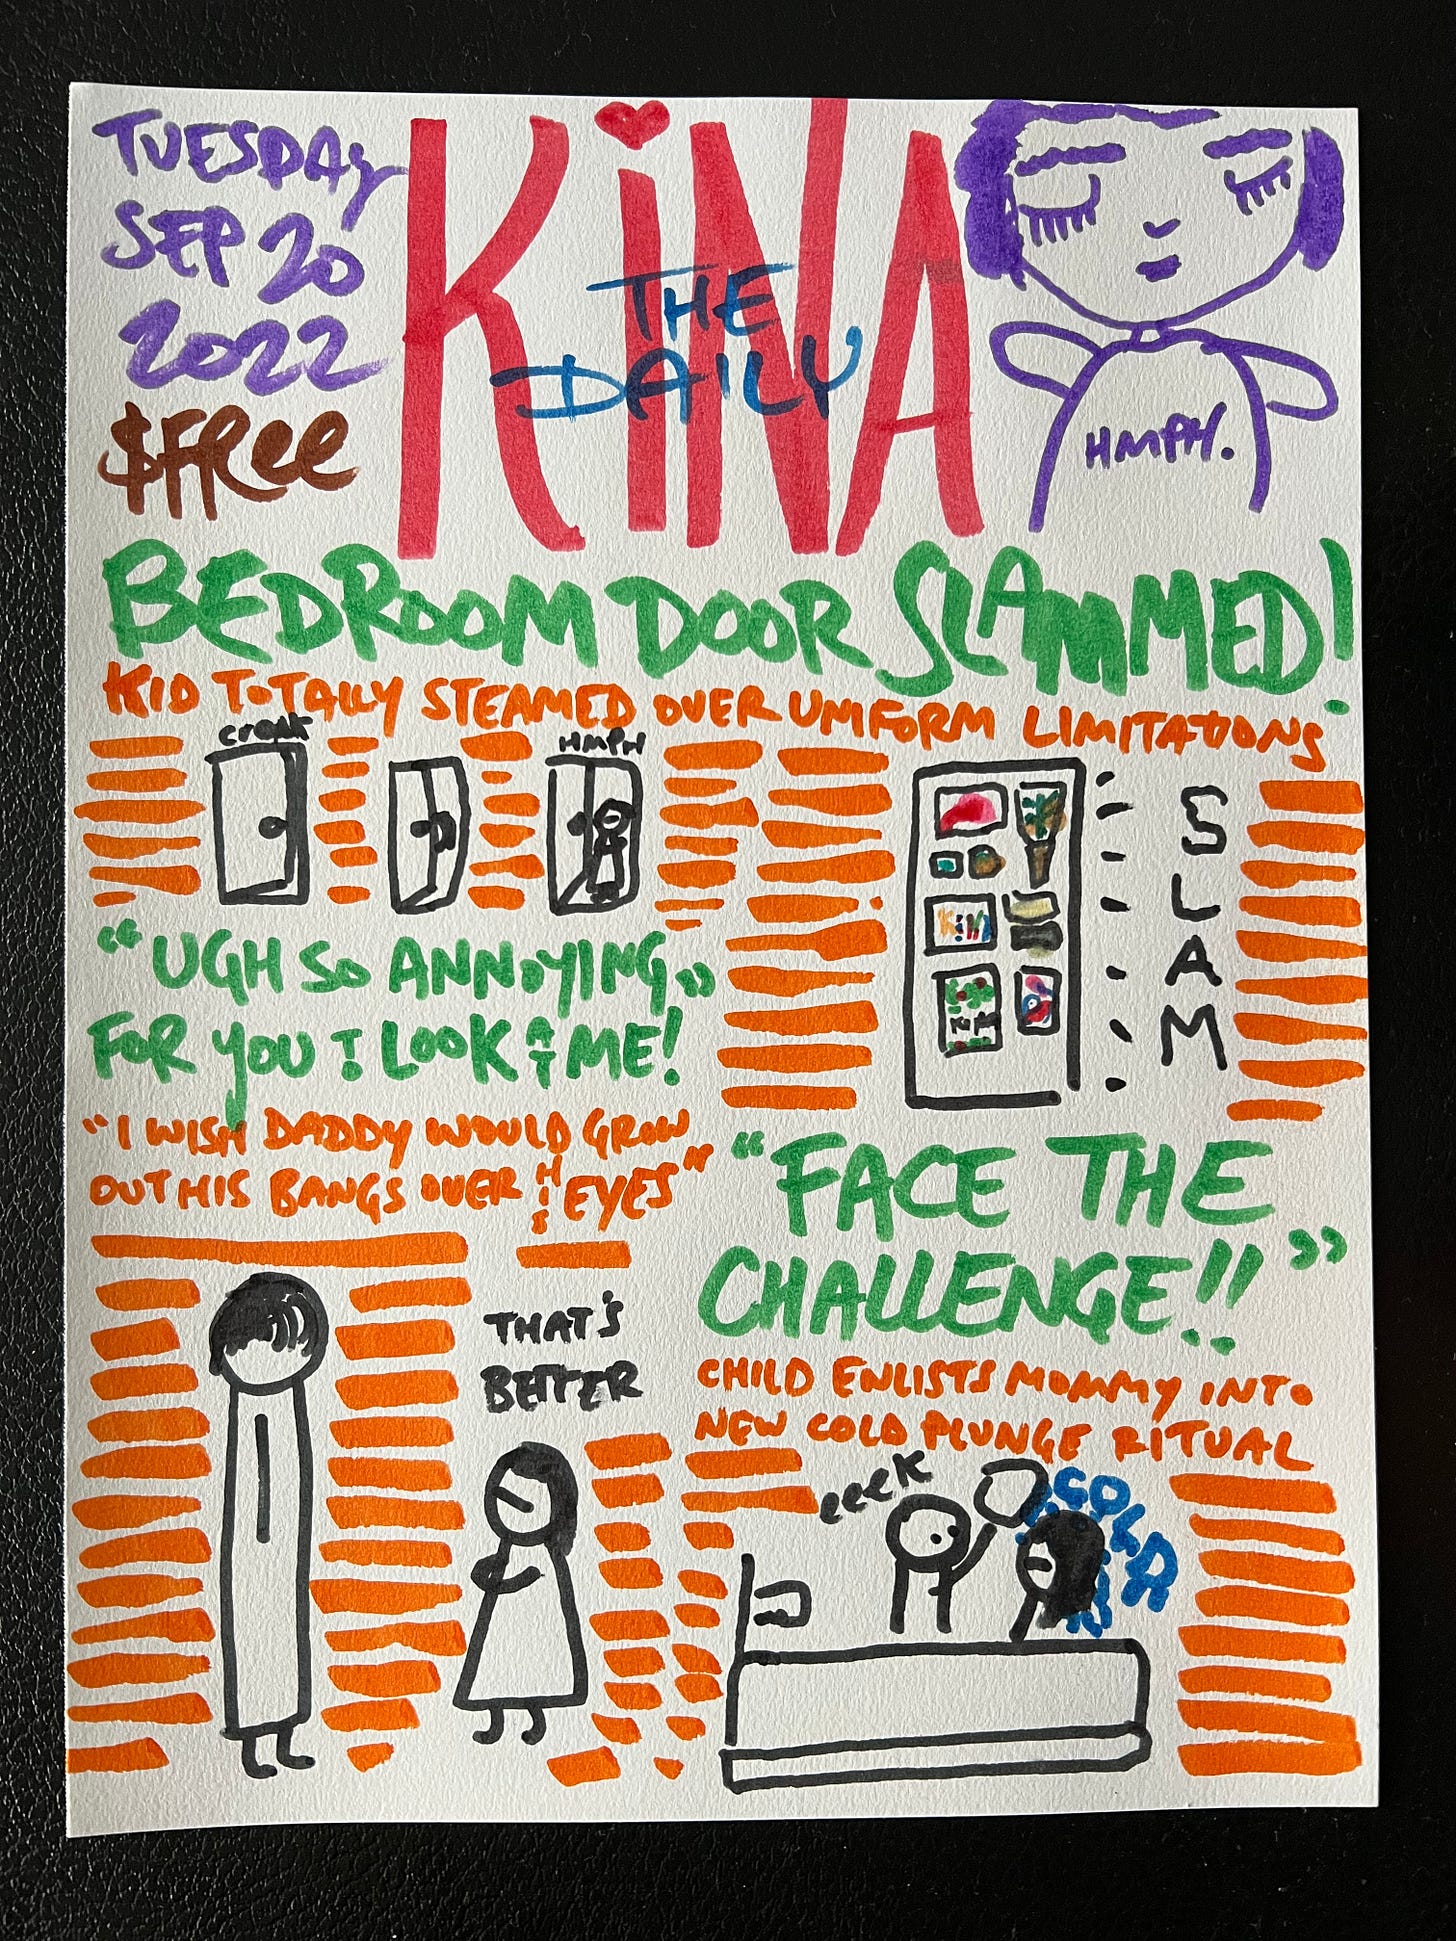 TUESDAY
SEP 20
2022
$FRee
THE
DAILY
KiNA
HMPH.
BEDROOM DOOR SLAMMED!
KID TOTALLY STEAMED OVER UNIFORM LIMITATIONS
CREAK
HMPH
SLAM
KiNA
"UGH SO ANNOYING"
FOR YOU TO LOOK AT ME!
"I WISH DADDY WOULD GROW
OUT HIS BANGS OVER HIS EYES"
THAT'S
BETTER
"FACE THE
CHALLENGE!!"
CHILD ENLISTS MOMMY INTO
NEW COLD PLUNGE RITUAL
eeek
COLD